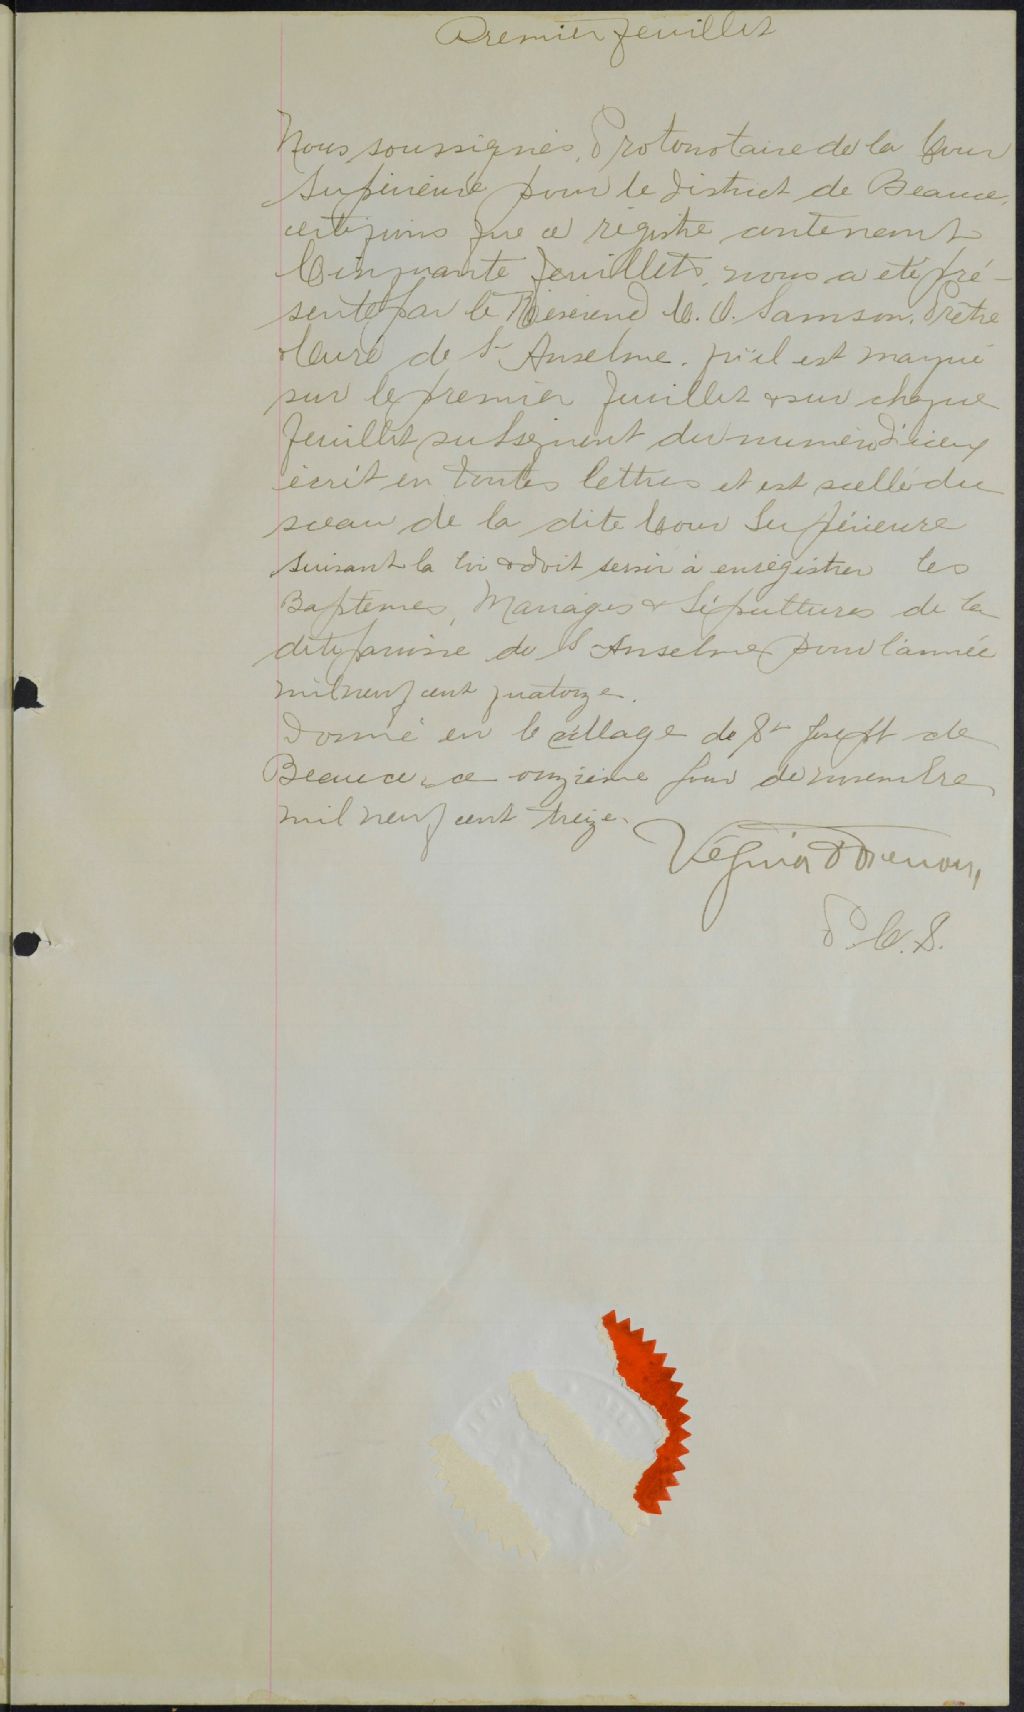 Premier feuillet
Nous soussignés, Protonotaire de la Cour
Supérieure pour le district de Beauce,
certifions que ce régistre contenant
Cinquante feuillets, nous a été pré-
senté par le Révérend C. O. Samson, Prêtre
& Curé de St Anselme. qu'il est marqué
sur le premier feuillet & sur chaque
feuillet subséquent du numéro d'iceux
écrit en toutes lettres et est scellé du
sceau de la dite Cour Supérieure
suivant la loi & doit servir à enrégistrer les
Baptêmes, Mariages & Sépultures de la
dite paroisse de St Anselme pour l'année
mil neuf cent quatorze.
Donné en le village de St Joseph de
Beauce, ce onzième jour de novembre
mil neuf cent treize.
Vézina
P.C.S.